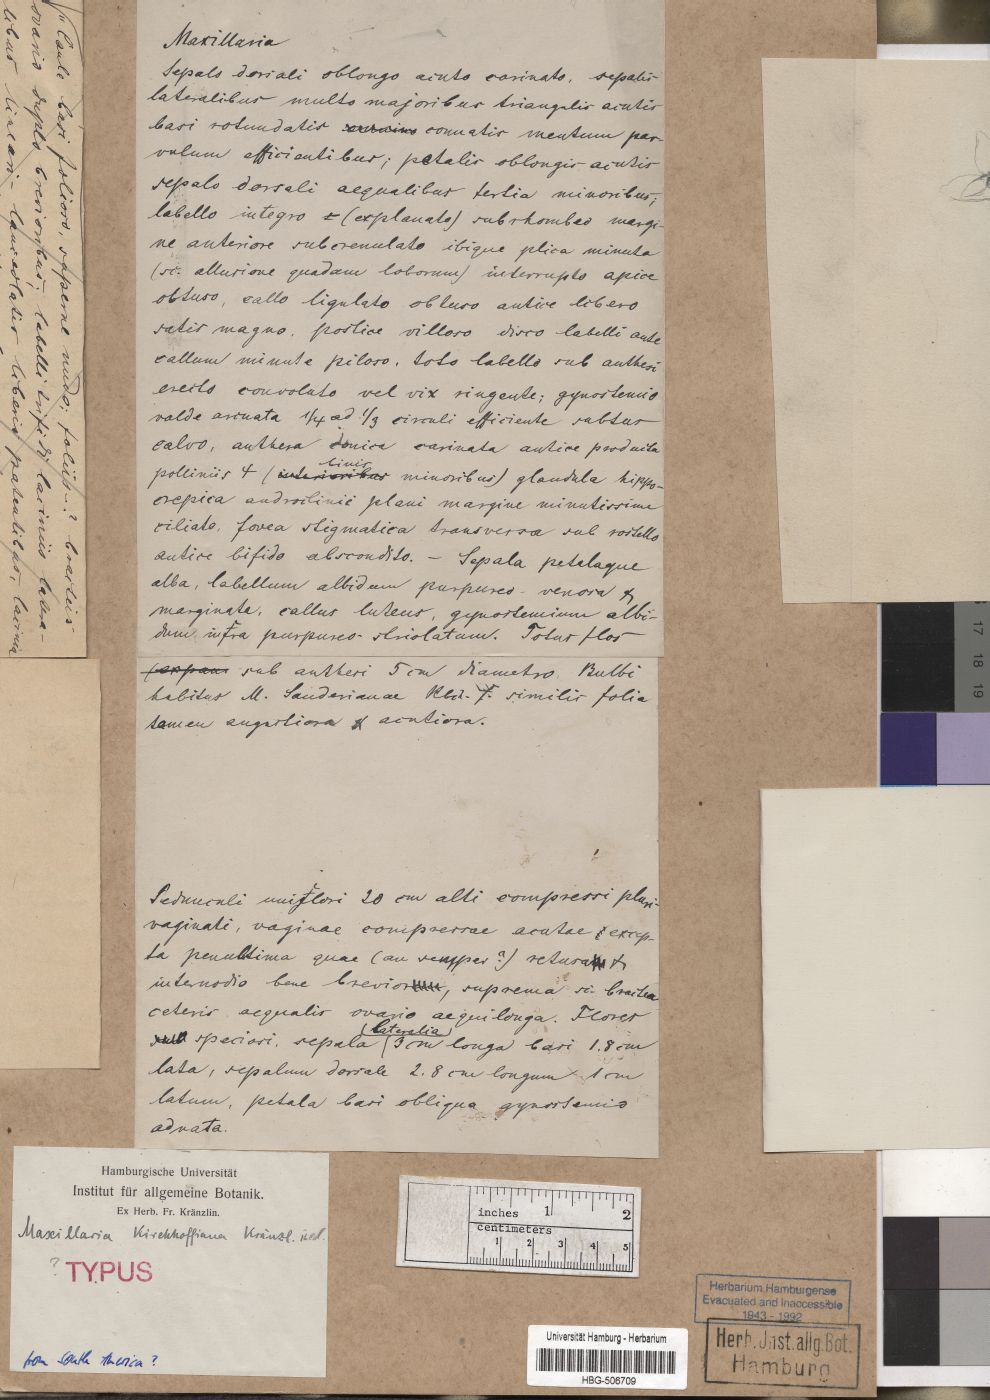 Maxillaria
Sepalo dorsali oblongo acuto carinato, sepalis
lateralibus multo majoribus triangulis acutis
basi rotundatis connatis mentum par-
vulum efficientibus; petalis oblongis acutis
sepalo dorsali aequalibus tertia minoribus;
labello integro (explanato) subrhombeo margi-
ne anteriore subcrenulato ibique plica minuta
(sc. allusione quadam loborum) interrupto apice
obtuso, callo ligulato obtuso antice libero
satis magno, postice villoso disco labelli ante
callum minute piloso, toto labello sub anthesi
erecto convoluto vel vix ringente; gynostemio
valde arcuata 1/4 ad 1/3 circuli efficiente subtus
calvo, anthera conica carinata antice producta
polliniis 4 (interioribus binis minoribus) glandula hippo-
crepica androclinii plani margine minutissime
ciliato, fovea stigmatica transversa sub rostello
antice bifido abscondito. — Sepala petalaque
alba, labellum albidum purpureo-venosa &
marginata, callus luteus, gynostemium albi-
dum, infra purpureo-striolatum. Totus flos
(expans sub antheri 5 cm diametro. Bulbi
habitus M. Sanderianae Rchb. f. similis folia
tamen angustiora & acutiora.
Pedunculi uniflori 20 cm alti compressi pluri-
vaginati, vaginae compressae acutae excep-
ta penultima quae (an semper?) retusa &
internodio bene brevior, suprema sc. bractea
ceteris aequalis ovario aequilonga. Flores
speciosi, sepala (lateralia) 3 cm longa basi 1.8 cm
lata, sepalum dorsale 2.8 cm longum 1 cm
latum, petala basi obliqua gynostemio
adnata.
Caule basi folioso, superne nudo; foliis-? bracteis
ovario duplo brevioribus; labelli trifidi laciniis latera-
libus lineari-lanceolatis liberis patentibus, lacinia
Hamburgische Universität
Institut für allgemeine Botanik.
Ex Herb. Fr. Kränzlin.
Maxillaria Kirchhoffiana Kränzl. ined.
? TYPUS
from South America?
inches 1 2
centimeters
1 2 3 4 5
Universität Hamburg - Herbarium
HBG-506709
Herbarium Hamburgense
Evacuated and inaccessible
1943 - 1992
Herb. Inst. allg. Bot.
Hamburg
17 18 19